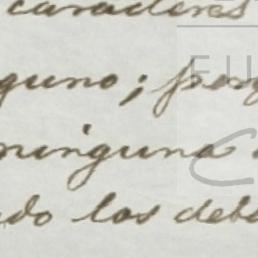 caracteres
guno; porq
ninguna
do los deb